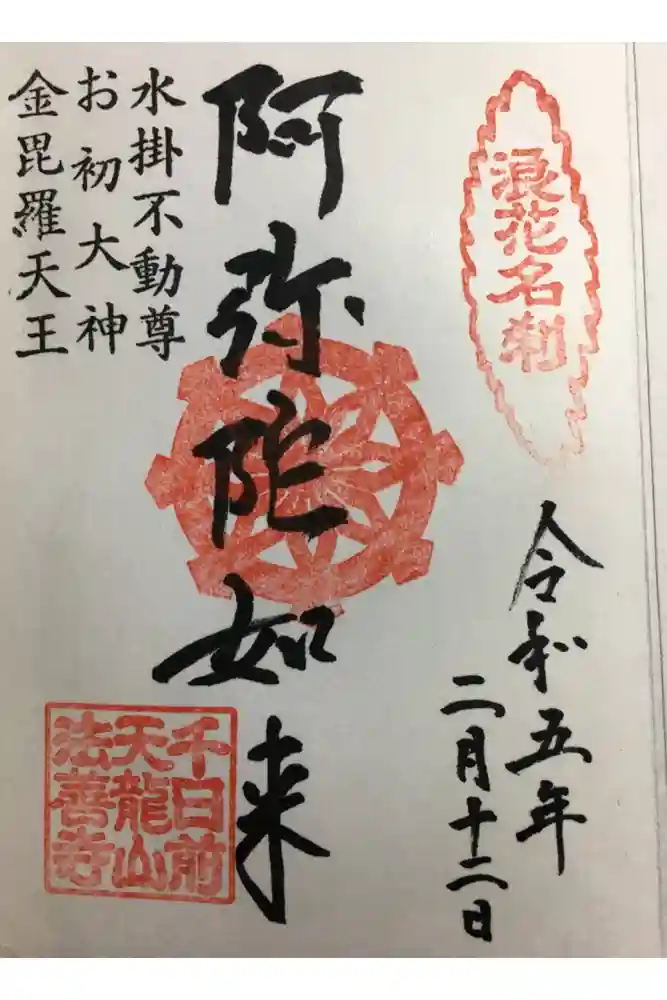 浪花名刹
令和五年
二月十二日
阿弥陀如来
水掛不動尊
お初大神
金毘羅天王
千日前
天龍山
法善寺